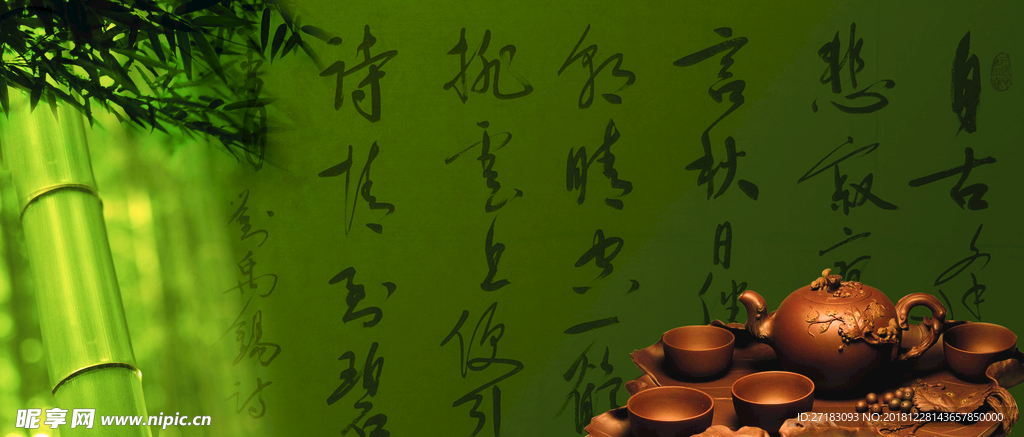 自古
悲寂寥
言秋日
朝晴空一鶴
排雲上便引
詩情到碧
劉禹錫詩
昵享网 www.nipic.cn
ID:27183093 NO:20181228143657850000